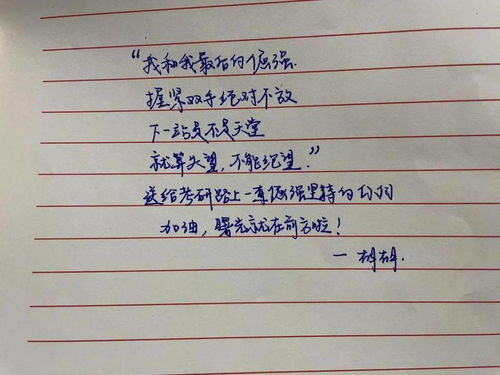 “我和我最后的倔强
握紧双手绝对不放
下一站是不是天堂
就算失望，不能绝望”
送给考研路上一直倔强坚持的
加油，曙光就在前方啦！
—